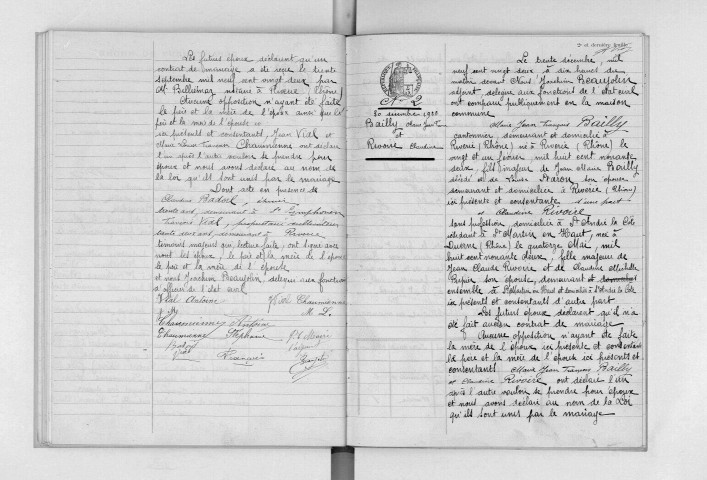 Les futurs époux déclarent qu'un
contrat de mariage a été reçu le trente
septembre mil neuf cent vingt deux par
Me notaire à Riverie (Rhône)
Aucune opposition n'ayant été faite
le père et la mère de l'époux ainsi que le
père et la mère de l'épouse
ici présents et consentants, Jean Vial et
Marie Chaumienne ont déclaré
l'un après l'autre vouloir se prendre pour
époux et nous avons déclaré au nom de
la loi qu'ils sont unis par le mariage
Dont acte en présence de
Claudius Badoil
trente ans, demeurant à St Symphorien
François Vial, propriétaire cultivateur
trente ans, demeurant à Riverie
témoins majeurs qui, lecture faite, ont signé avec
nous les époux, le père et la mère de l'époux
le père et la mère de l'épouse
et nous Joachim Beaujolin, délégué aux fonctions
d'officier de l'état civil
Vial Antoine Vial Chaumienne
Chaumienne Antoine M. L.
Chaumienne Stéphanie
Badoil
Vial François
2e et dernière feuille
No 2
30 décembre 1922
Bailly
et
Rivoire Claudine
Le trente décembre, mil
neuf cent vingt deux à dix heures du
matin devant Nous, Joachim Beaujolin
adjoint, délégué aux fonctions de l'état civil
ont comparu publiquement en la maison
commune
Marie Jean François Bailly
cantonnier, demeurant et domicilié à
Riverie (Rhône) né à Riverie (Rhône) le
vingt et un février, mil huit cent nonante
deux, fils majeur de Jean Marie Bailly
décédé et de Louise son épouse
demeurant et domiciliée à Riverie (Rhône)
ici présente et consentante d'une part
et Claudine Rivoire
sans profession domiciliée à St André la Côte
résidant à St Martin en Haut, née à
Duerne (Rhône) le quatorze Mai, mil
huit cent nonante deux, fille majeure de
Jean Claude Rivoire et de Claudine
son épouse, demeurant et
ensemble à St André la Côte
ici présents et consentants d'autre part
Les futurs époux déclarent qu'il n'a
été fait aucun contrat de mariage
Aucune opposition n'ayant été faite
la mère de l'époux ici présente et consentante
le père et la mère de l'épouse ici présents et
consentants Marie Jean François Bailly
et Claudine Rivoire ont déclaré l'un
après l'autre vouloir se prendre pour époux
et nous avons déclaré au nom de la Loi
qu'ils sont unis par le mariage